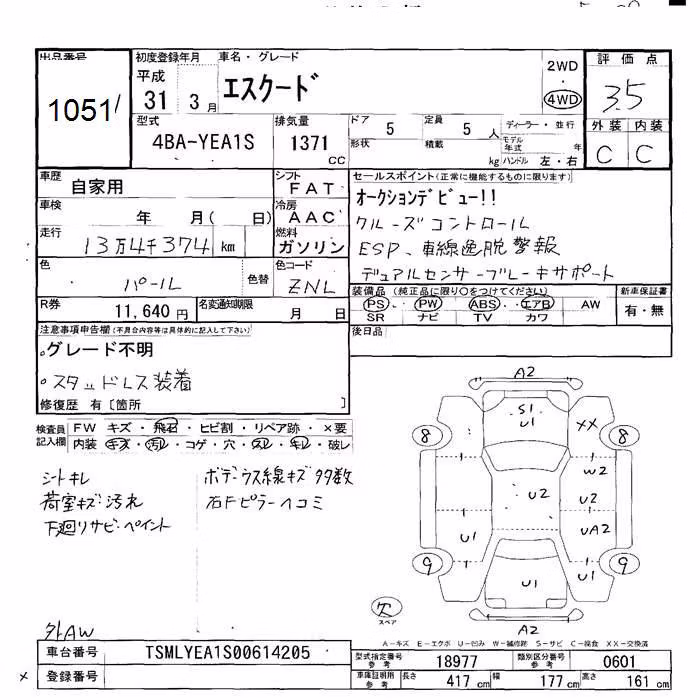 出品番号
1051
初度登録年月
平成
31 3月
車名・グレード
エスクード
2WD
4WD
評価点
3.5
外装 内装
C C
型式
4BA-YEA1S
排気量
1371
CC
ドア 5
定員 5 人
ディーラー・並行
形状
積載 kg
モデル年式 年
ハンドル 左・右
車歴 自家用
シフト FAT
車検 年 月( 日)
冷房 AAC
走行 13万4千374 km
燃料 ガソリン
色 パール 色替
色コード ZNL
R券 11,640円
名変通知期限 月 日
セールスポイント(正常に機能するものに限ります)
オークションデビュー!!
クルーズコントロール
ESP、車線逸脱警報
デュアルセンサーブレーキサポート
装備品(純正品に限り○をつけてください)
PS・PW・ABS・エアB・AW
SR ナビ TV カワ
新車保証書
有・無
後日品
注意事項申告欄(不具合内容等は具体的に記入して下さい)
。グレード不明
・スタッドレス装着
修復歴 有〔箇所 〕
検査員記入欄
FW キズ・飛石・ヒビ割・リペア跡・×要
内装 キズ・汚れ・コゲ・穴・スレ・キレ・破レ
シートキレ
荷室キズ・汚れ
下廻リサビ・ペイント
ボデーウス線キズタ多数
右Fピラーヘコミ
外AW
A2
S1
U1
XX
8 8
W2
U2
UA2
U1
U1
9 9
U1
A2
欠
スペア
A-キズ E-エクボ U-凹み W-補修跡 S-サビ C-腐食 XX-交換済
車台番号 TSMLYEA1S00614205
登録番号
×
型式指定番号 参考 18977
類別区分番号 参考 0601
車庫証明用 参考 長さ 417cm 幅 177cm 高さ 161cm